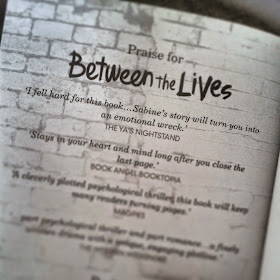 Praise for
Between the Lives
'I fell hard for this book...Sabine's story will turn you into
an emotional wreck.'
THE YA'S NIGHTSTAND
'Stays in your heart and mind long after you close the
last page.'
BOOK ANGEL BOOKTOPIA
'A cleverly plotted psychological thriller, this book will keep
many readers turning pages.'
MAGPIES
part psychological thriller and part romance... a finely
written drama with a
plotline.'